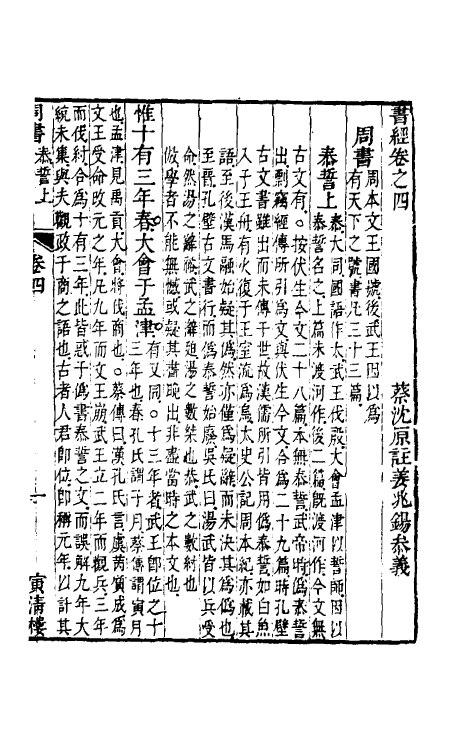 書經卷之四　　蔡沈原註姜兆錫叅義
周書
周本文王國號後武王因以爲
有天下之號書凡三十三篇
泰誓上
泰大同國語作太武王伐殷大會孟津以誓師因以
泰誓名之上篇未渡河作後二篇旣渡河作今文無
古文有○按伏生今文二十八篇本無泰誓武帝時僞泰誓
出剽竊經傳所引爲文與伏生今文合爲二十九篇時孔壁
古文書雖出而未傳于世故漢儒所引皆用僞泰誓如白魚
入于王舟有火復于王室流爲烏太史公記周本紀亦載其
語至後漢馬融始疑其僞然亦僅爲疑辭而未決其爲僞也
至晉孔壁古文書行而僞泰誓始廢吳氏曰湯武皆以兵受
命然湯之辭裕武之辭迫湯之數桀也恭武之數紂也
傲學者不能無憾或疑其書晚出非盡當時之本文也
惟十有三年春大會于孟津
有又同○十三年者武王即位之十
三年也春孔氏謂子月蔡傳謂寅月
也孟津見禹貢大會將伐商也○蔡傳曰漢孔氏言虞芮質成爲
文王受命改元之年凡九年而文王崩武王立二年而觀兵三年
而伐紂合爲十有三年此皆惑于僞書泰誓之文而誤解九年大
統未集與夫觀政于商之語也古者人君即位即稱元年以計其
周書　泰誓上　卷四　一　寅清樓